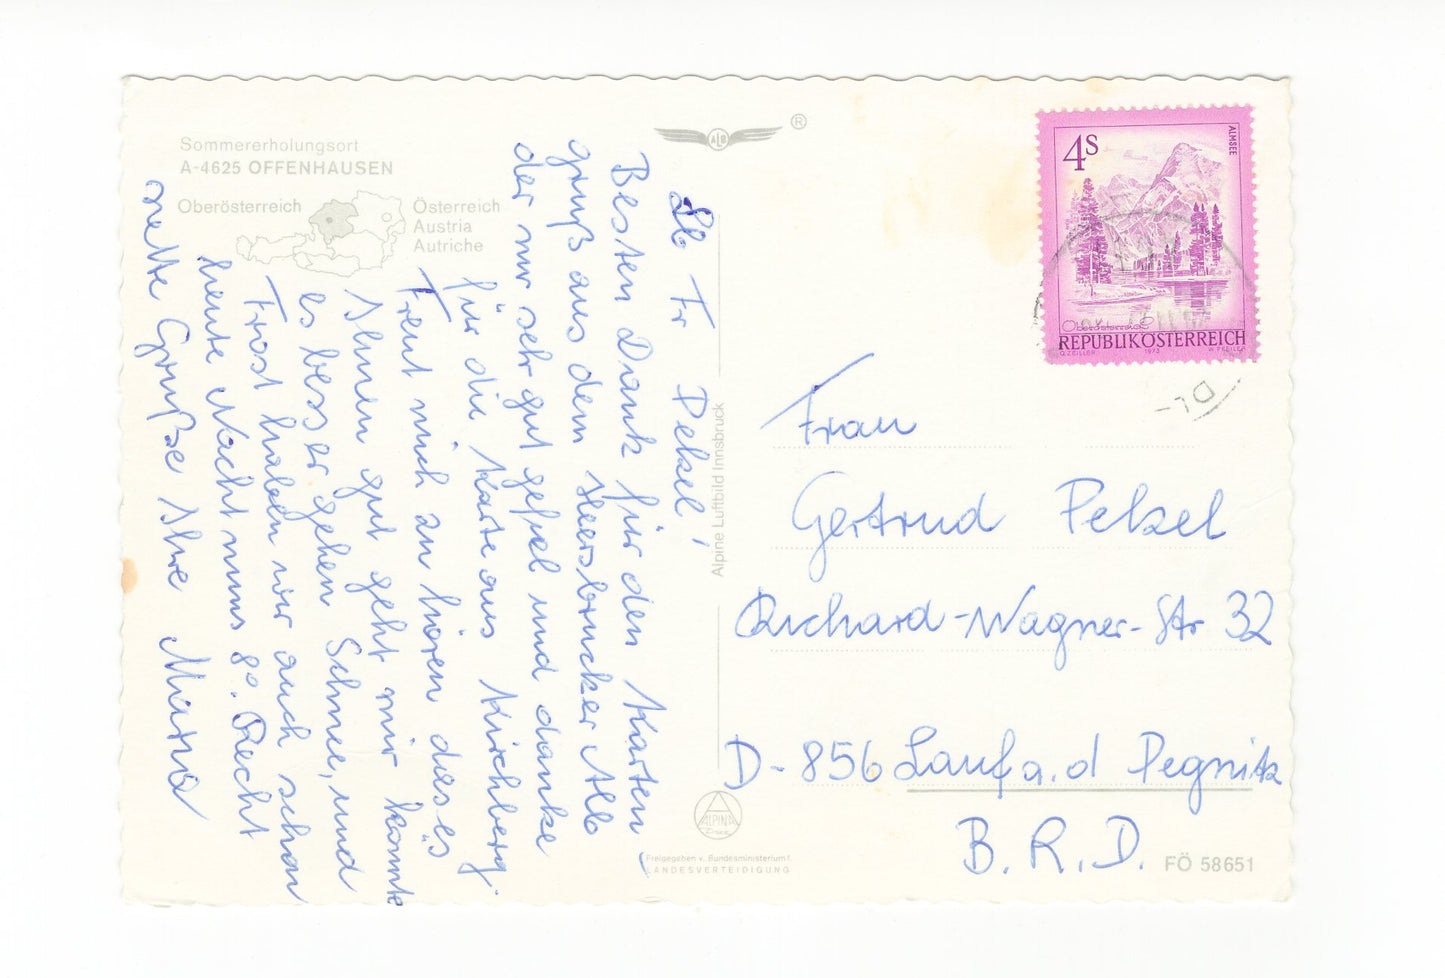 Sommererholungsort
A-4625 OFFENHAUSEN
Oberösterreich
Österreich
Austria
Autriche
Lb Fr Pelzel!
Besten Dank für den Karten
gruß aus dem Heersbrucker Alb
der mir sehr gut gefiel und danke
für die Karte aus Kirchberg.
Freut mich zu hören das es
Ihnen gut geht mir könnte
es besser gehen Schnee, und
Frost haben wir auch schon
heute Nacht minus 8°. Recht
nette Grüße Ihre Maria
ALB
®
Alpine Luftbild Innsbruck
ALPINA
Freigegeben v. Bundesministerium f.
LANDESVERTEIDIGUNG
4S
ALMSEE
Oberösterreich
REPUBLIK ÖSTERREICH
O. ZEILLER 1973 W. PFEILER
Frau
Gertrud Pelzel
Richard-Wagner-Str 32
D-856 Lauf a.d Pegnitz
B.R.D.
FÖ 58651